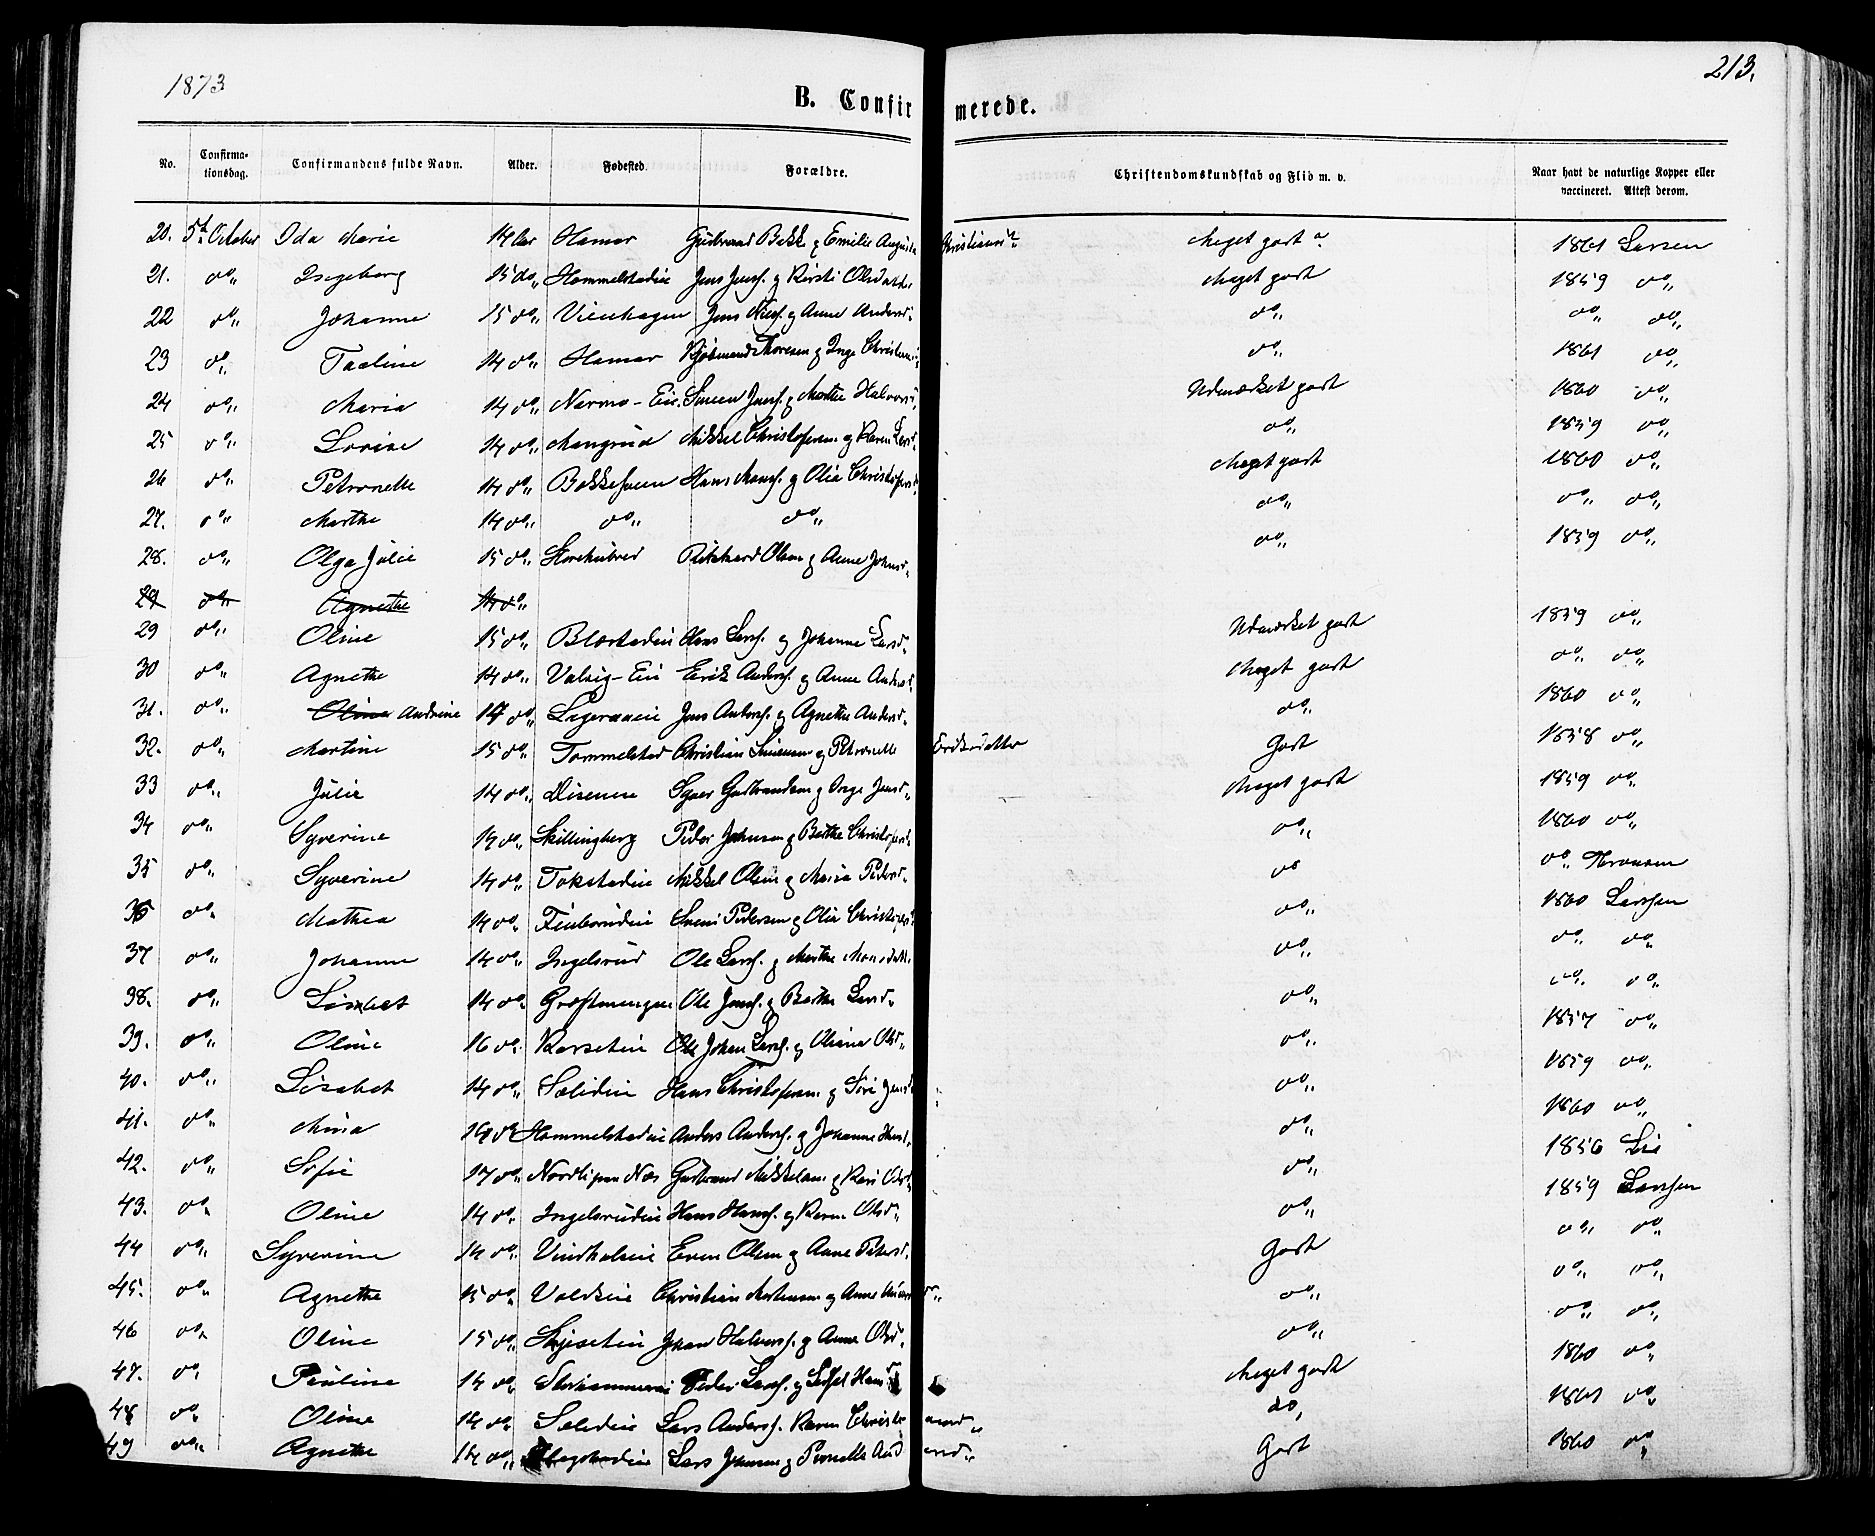 1873
213.
B. Confirmerede.
No. Confirmationsdag. Confirmandens fulde Navn. Alder. Fødested. Forældre. Christendomskundskab og Flid m. v. Naar havt de naturlige Kopper eller vaccineret. Attest derom.
20. 5te October Ida Marie 14 Aar Hamar Gudbrand Bakke og Emilie Augusta Meget godt 1861 Larsen
21. do Ingeborg 15 do Hommelstadeie Jens Jensf. og Kirsti Olsdatter Meget godt 1859 do
22 do Johanne 15 do Vienhagen Jens og Anne Andersd. do do do
23 do Pauline 14 do Hamar Thoresen og Inge do 1861 do
24 do Maria 14 do Narmo-Eie Simen Jensf. og Marthe Halvorsd. Udmærket godt 1860 do
25 do Lovise 14 do Mangrud Mikkel Christofersen og Karen Larsd. do 1859 do
26 do Petronelle 14 do Bakkehuen Hans Hansf. og Olia Christofersd. Meget godt 1860 do
27. do Marthe 14 do do do do do do
28. do Olga Julie 15 do Rikhard Olsen og Anne Johnsd. do 1859 do
29 do Agnethe 14 do
29 do Oline 15 do Blæstadeie Hans Larsf. og Johanne Larsd. Udmærket godt 1859 do
30 do Agnethe 14 do Valsig-Eie Erik Andersf. og Anne Andersd. Meget godt do do
31. do Oline Andrine 14 do Lageraaeie Jens Andersf. og Agnethe Andersd. do 1860 do
32. do Martine 15 do Tommelstad Christian Simensen og Petronelle Eriksdatter Godt 1858 do
33 do Julie 14 do Disenese Syver Gudbrandsen og Inge Jensd. Meget godt 1859 do
34 do Syverine 14 do Skillingberg Peder Johnsen og Berthe Christofersd. do 1860 do
35 do Syverine 14 do Tokstadeie Mikkel Olsen og Maria Pedersd. do do Thronsen
36 do Mathea 14 do Finborudeie Svend Pedersen og Olia Christofersd. do 1860 Larssen
37 do Johanne 14 do Ingelsrud Ole Larsf. og Marthe Monsdatt. do do do
38. do Lisabet 14 do Græstmengen Ole Jensf. og Berthe Larsd. do do do
39. do Oline 16 do Karseteie Ole Johan Larsf. og Oliane Olsd. do 1857 do
40. do Lisabet 14 do Sælideie Hans Christofersen og Siri Jensd. do 1859 do
41. do Mina 14 do Hommelstadeie Anders Andersf. og Johanne Hansd. do 1860 do
42. do Sofie 17 do Nordli paa Næs Gudbrand Mikkelsen og Kari Olsd. do 1856 Lie
43. do Oline 14 do Ingelsrudeie Hans Hansf. og Karen Olsd. do 1859 Larssen
44 do Syverine 14 do Vindhalseie Even Olsen og Anne Pedersd. Godt do do
45. do Agnethe 15 do Voldseie Christian Mortensen og Anne do do do
46 do Oline 15 do Skjeseteie Johan Halvorsf. og Anne Olsd. do do do
47. do Pauline 14 do Storhammereie Peder Larsf. og Hansd. Meget godt 1860 do
48 do Oline 14 do Sælideie Lars Andersf. Karen do, 1861 do
49 do Agnethe 14 do Lars Johnsen og Pernelle Godt 1860 do